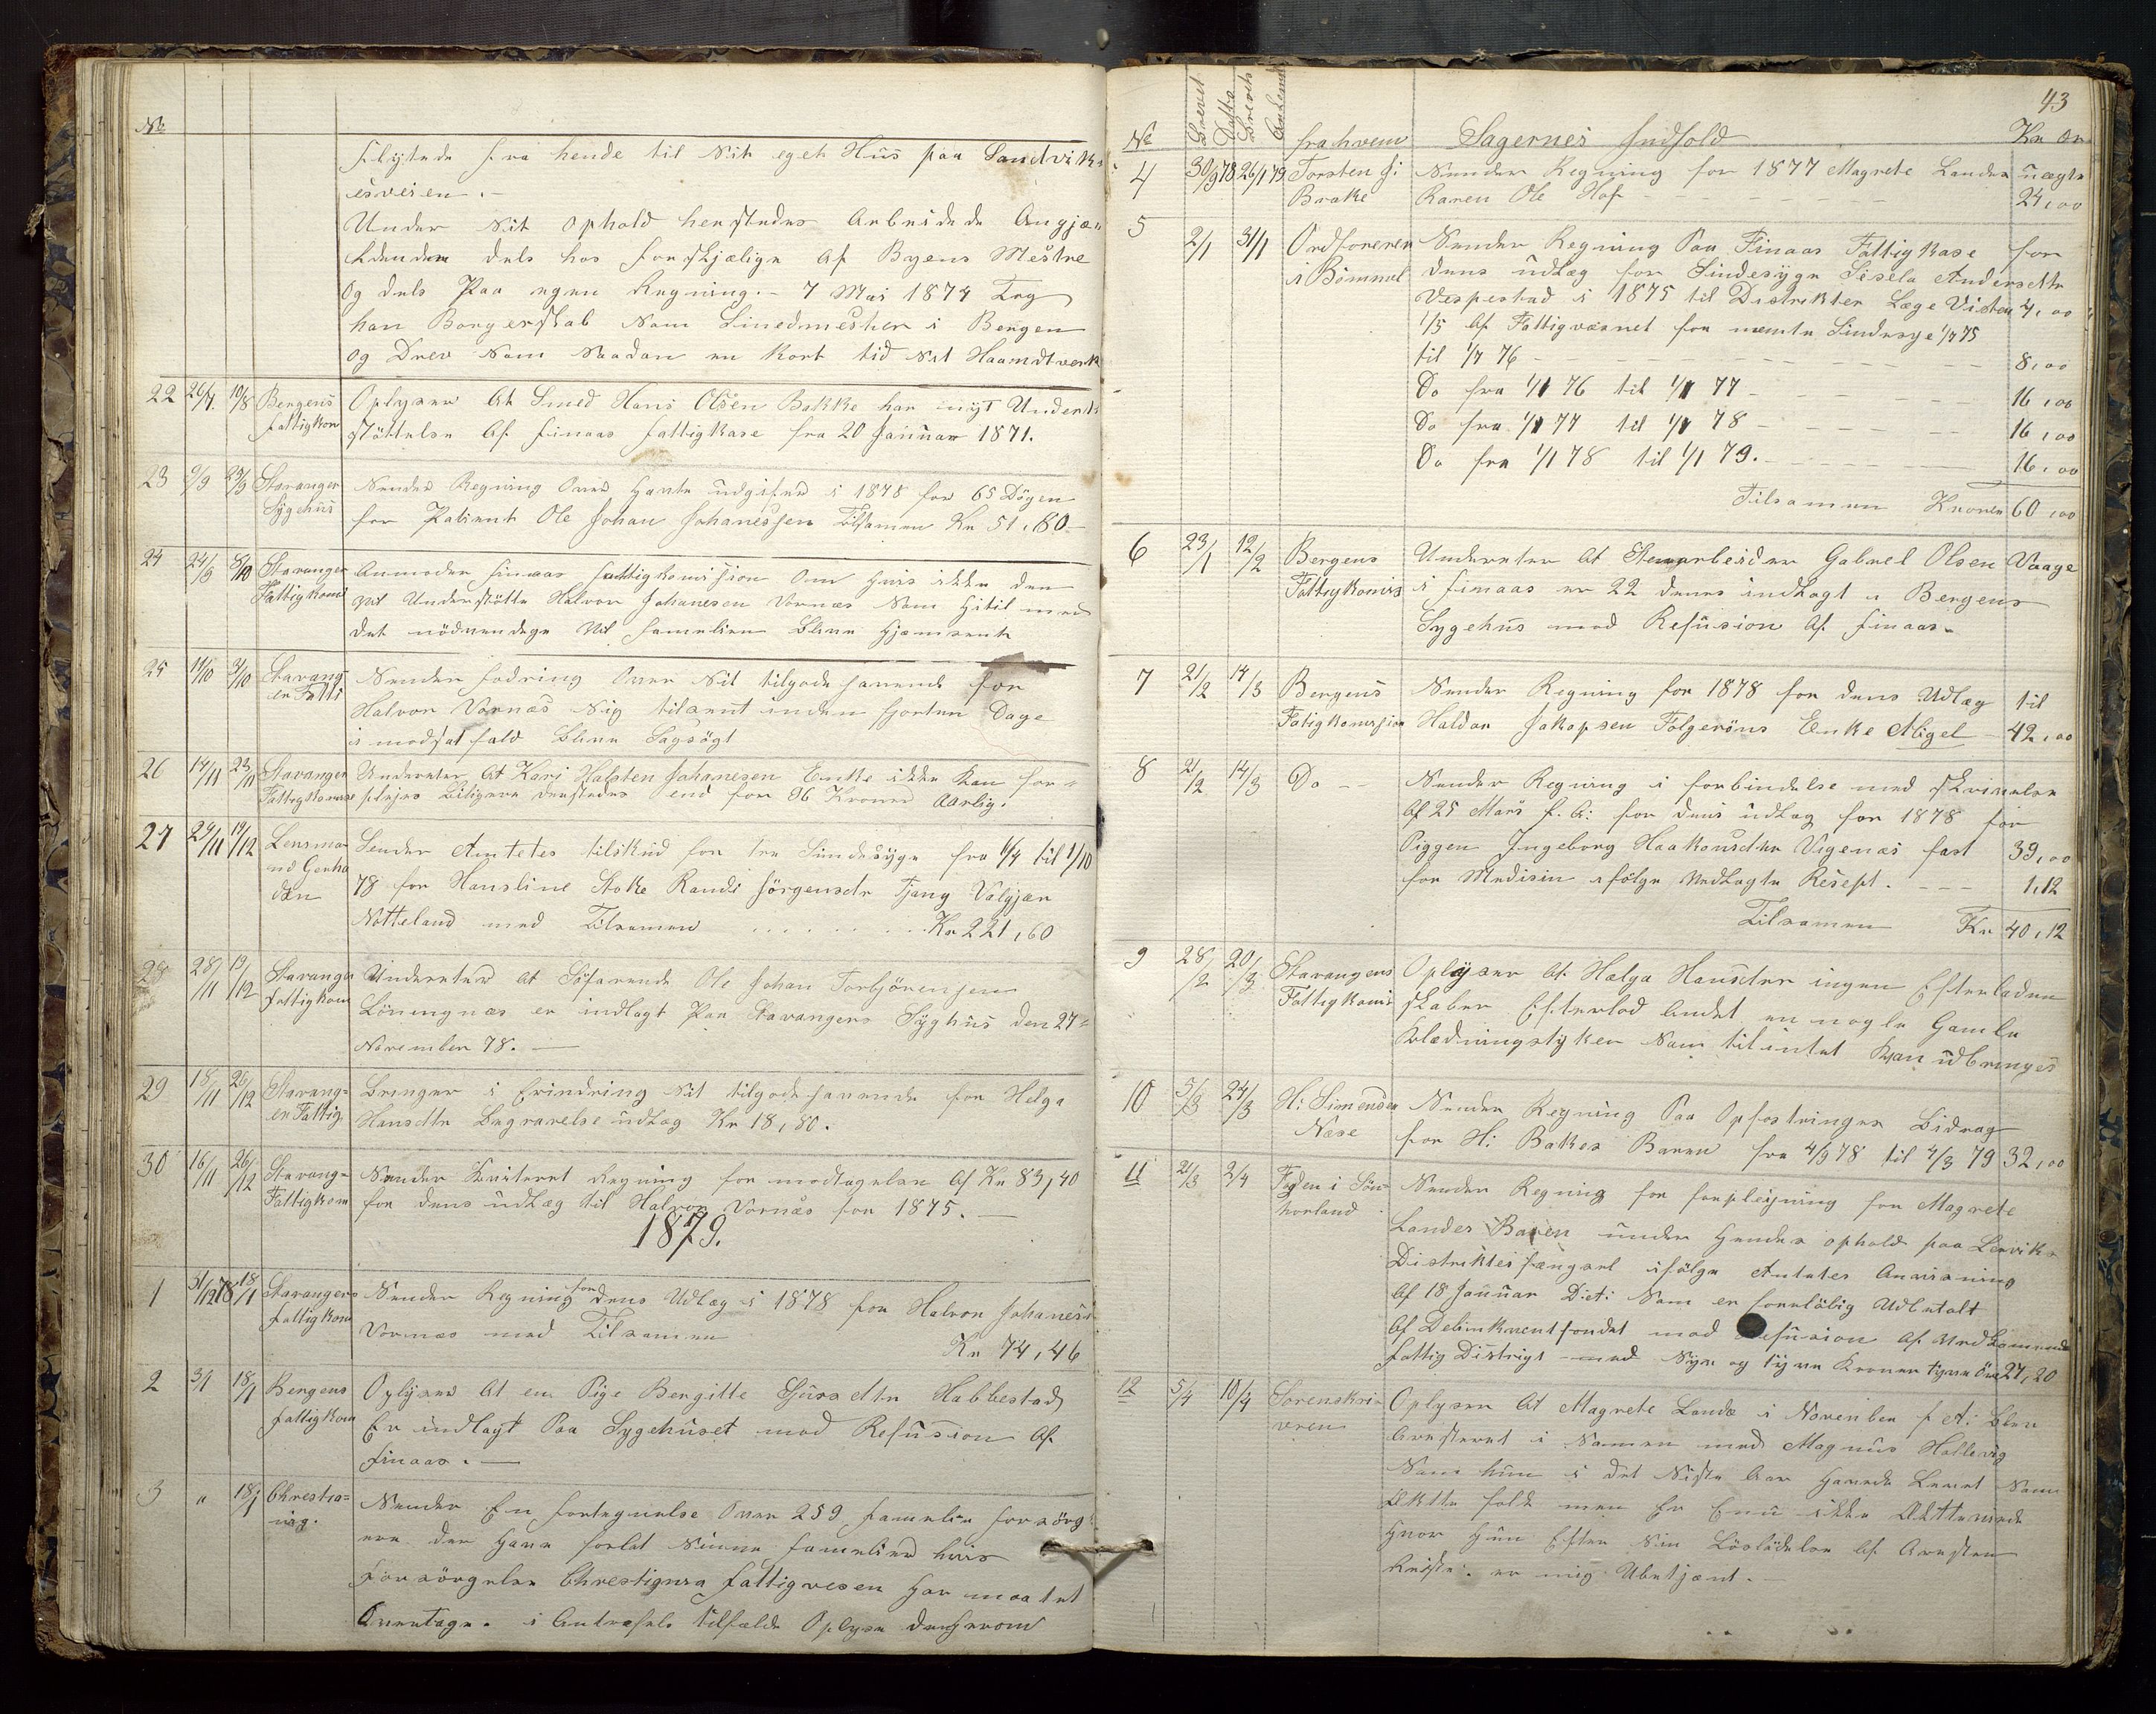 No
flytede fra hende til sit eget Hus paa Sandviks
esveien. -
Under sit Ophold herstedes Arbeidede Angjæ-
ldenden dels hos forskjælige Af Byens Mestre
og dels Paa egen Regning. - 7 Mai 1874 Tog
han Borgerskab som Smedmester i Bergen
og Drev som saadan en kort tid sit Haandtverk
22 26/7. 10/8 Bergens fattigkom Oplyser At Smed Hans Olsen Bakke har nyt Under
støttelse Af finaas fattigkase fra 20 Januar 1871.
23 9/9 23/9 Stavanger Sygehus Sender Regning Over Hafte udgifter i 1878 for 65 Døgen
for Patient Ole Johan Johanessen Tilsamen Kr 51,80
24 24/9 8/10 Stavanger Fattigkom Anmoder finaas fattigkomission Om Hvis ikke den
vil Understøtte Halvor Johanesen Vornæs som Hitil med
det nødvendige Vil familien Blive Hjemsent
25 11/10 3/10 Stavanger Fatti Sender fodring Over Sit tilgode havende for
Halvor Vornæs Sig tilsent inden fjorten Dage
i modsat fald Blive Sagsøgt
26 14/11 23/11 Stavanger Fattigkomise Underreter At Kari Halsten Johanesen Enke ikke kan for-
plejes Biligere dersteds end for 96 Kroner Aarlig.
27 29/11 14/12 Lensmand Sender Amtets tilskud for tre Sindsyge fra 1/7 til 1/10
78 for Hansline Stoke Randi Jörgensdr Tjang Valgjær
Notteland med Tilsamen . . . . . . . . Kr 221,60
28 28/11 13/12 Stavanger fattigkom Underreter At Söfarende Ole Johan Torbjörensen
Löningnæs er indlagt Paa Stavangers Syghus den 27-
November 78. -
29 18/11 26/12 Stavanger Fattig Bringer i Erindring Sit tilgode havende for Helga
Hansdtr Begravelse udlæg Kr 18,80.
30 16/11 26/12 Stavang- Fattigkom Sender Kviteret Regning for modtagelse Af Kr 83,40
for dens udlæg til Halvor Vornæs for 1875. -
1879.
1 31/12 78 18/1 Stavangers fattigkom Sender Regning for dens Udlæg i 1878 for Halvor Johanes
Vornæs med Tilsamen Kr 74,46
2 3/1 18/1 Bergens fattigkom Oplyser At en Pige Bergitte Sjursdtr Habbestad
Er indlagt Paa Sygehuset mod Refusion Af
finaas. -
3 " 18/1 Chrestia= nia. Sender En fortegnelse Over 259 familie forsörg
ere der Have forlat Sinne familier hvis
Forsörgelse Chrestiania fattigvesen Har maatet
Overtage. i Antrefele tilfælde Oplyse derHerom
43
No Brevet Datto Brevets Ankomst fra hvem Sagernes Indhold Kr Ør
4 30/9 78 26/1 79 Torsten J: Brake Sender Regning for 1877 Magrete Landes uægte
Baren Ole Hof - - - - 24,00
5 2/1 31/1 Ordföreren i Bömmel Sender Regning Paa Finaas Fattigkase for
dens udlæg for Sindesyge Sisela Andersdtr
Vespestad i 1875 til Distrikter Læge Visten 4,00
1/5 Af Fattigvæsnet for nemte Sindesyge 1/7 75
til 1/7 76 - - - - 8,00
Do fra 1/1 76 til 1/1 77 - - - - 16,00
Do fra 1/1 77 til 1/1 78 - - - - 16,00
Do fra 1/1 78 til 1/1 79. - - - - 16,00
Tilsamen Kroner 60,00
6 23/1 12/2 Bergens Fattigkomis Underreter At Stenarbeider Gabriel Olsen Vaage
i finaas er 22 denes indlagt i Bergens
Sygehus mod Refusion Af finaas.
7 21/2 14/3 Bergens Fatigkomission Sender Regning for 1878 for dens Udlæg til
Haldor Jakopsen Folgeröns Enke Migel - 42,00
8 21/2 14/3 Do - - Sender Regning i forbindelse med skrivelse
Af 25 Mars f. A: for dens udlæg for 1878 for
Piggen Ingeborg Haakonsdtr Vigenæs fast 39,00
for Medisin ifölge vedlagte Resept. - - - 1,12
Tilsamen Kr 40,12
9 28/2 20/3 Stavangers Fattigkomis Oplyser At Helga Hansdter ingen Efterladen
skaber Efterlod Andet en nogle Gamle
Klædningstyker som til intet kan udbringes
10 5/3 24/3 H: Simensen Næse Sender Regning Paa Opfostrings Bidrag
for H: Bakes Baren fra 4/9 78 til 4/3 79 32,00
11 21/3 2/4 Fogden i Sön= horland Sender Regning for forpleigning for Magrete
Landes Baren under Hendes ophold paa Lerviks
Distriktsfængsel ifölge Amtetes Anvisning
Af 18 Januar D:A: som er forelöbig Udbetalt
Af Delinkventfondet mod Refusion Af vedkomende
fattig Distrigt - med Syv og tyve Kroner tyve Öre 27,20
12 5/4 10/4 Sorenskri- veren Oplyser At Magrete Lande i November f A: Blev
Aresteret i Samen med Magnus Hallevig
Som hun i det Siste Aar Havde Levet Som
Ækte folk men Er Enu ikke
Hvor Hun Efter Sin Löslatelse Af Aresten
er mig Ubekjænt. -